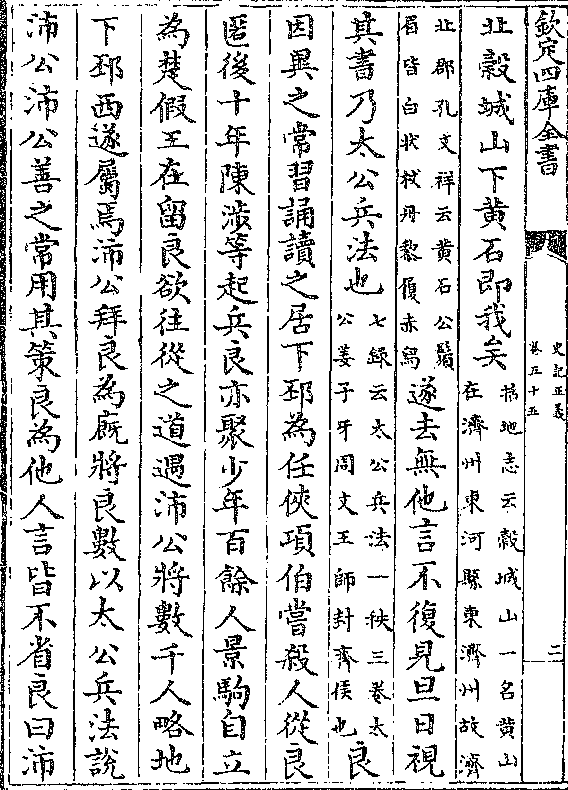 欽定四庫全書
史記正義
卷五十五
二
北榖城山下黄石即我矣
括地志云榖城山一名黄山
在濟州東河縣東濟州故濟
北郡孔文祥云黄石公鬚
眉皆白狀杖丹黎履赤舄
遂去無他言不復見旦日視
其書乃太公兵法也
七録云太公兵法一袟三卷太
公姜子牙周文王師封齊侯也
良
因異之常習誦讀之居下邳為任俠項伯嘗殺人從良
匿後十年陳涉等起兵良亦聚少年百餘人景駒自立
為楚假王在留良欲往從之道遇沛公將數千人略地
下邳西遂屬焉沛公拜良為厩將良數以太公兵法說
沛公沛公善之常用其策良為他人言皆不省良曰沛